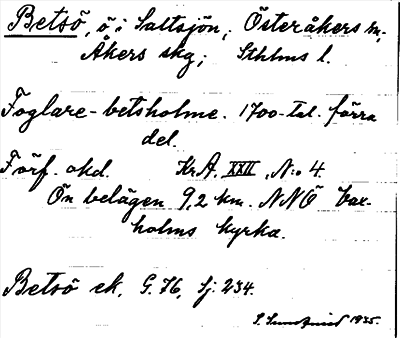 Betsö, ö i Saltsjön, Österåkers sn,
Åkers skg; Sthlms l.
Foglare-betsholme. 1700-tal. förra
del.
Förf. okd. KrA, XXII, N:o 4.
Ön belägen 9,2 km. NNÖ Vax-
holms kyrka.
Betsö ek. G. 76, Sj. 234.
1935.